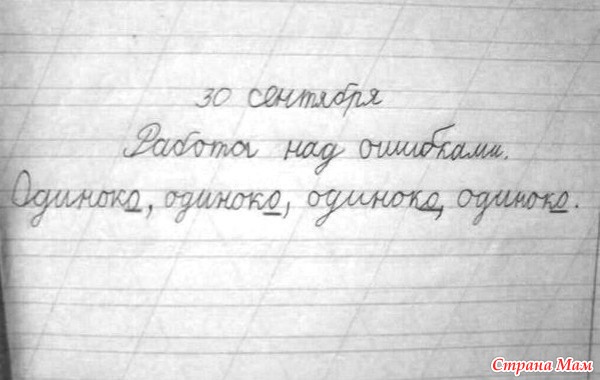 30 сентября
Работа над ошибками.
Одиноко, одиноко, одиноко, одиноко.
Страна Мам